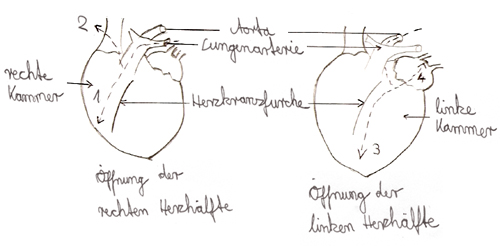 2
Aorta
Lungenarterie
rechte
Kammer
1
Herzkranzfurche
4
linke
Kammer
3
Öffnung der
rechten Herzhälfte
Öffnung der
linken Herzhälfte